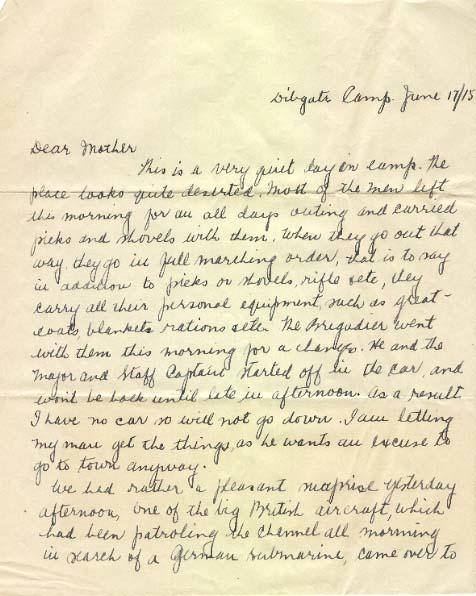 Dibgate Camp. June 17/15
Dear Mother
This is a very quiet day in camp. The
place looks quite deserted. Most of the men left
this morning for an all days outing and carried
picks and shovels with them. When they go out that
way they go in full marching order, that is to say
in addition to picks or shovels, rifle etc, they
carry all their personal equipment, such as great-
coats, blankets rations etc. The Brigadier went
with them this morning for a change. He and the
Major and Staff Captain started off in the car, and
won't be back until late in afternoon. As a result
I have no car so will not go down. I am letting
my man get the things, as he wants an excuse to
go to town anyway.
We had rather a pleasant surprise yesterday
afternoon, one of the big British aircraft, which
had been patroling the channel all morning
in search of a German submarine, came over to